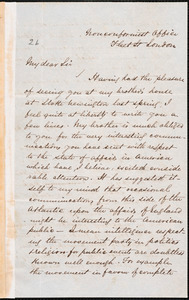 Nonconformist Office
Fleet St London
26
My dear Sir
Having had the pleasure
of seeing you at my brothers house
at Stoke Newington last Spring, I
feel quite at liberty to write you a
few lines. My brother is much obliged
to you for the very interesting commun-
ication you have sent with respect
to the state of affairs in America
which has, I believe, excited consider-
able attention. It has suggested it
self to my mind that occasional
communications from this side of the
Atlantic upon the affairs of England
might be interesting to the American
public — I mean intelligence respect-
ing the movement party in politics
& religion for public events are doubtless
known well enough. For example
the movement in favor of complete